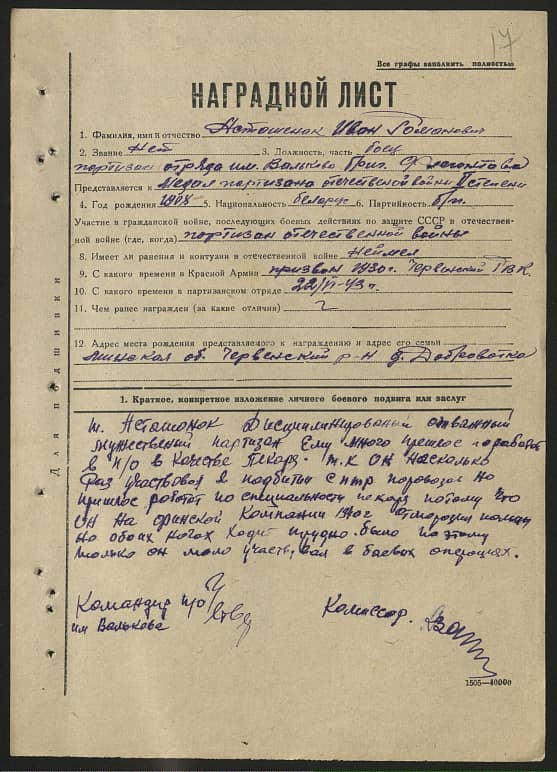 17
Все графы заполнить полностью
НАГРАДНОЙ ЛИСТ
1. Фамилия, имя и отчество Асташенок Иван Романович
2. Звание Нет 3. Должность, часть боец
партизан отряда им. Валькова бриг. Флегонтова
Представляется к Медали партизана отечественной войны II степени
4. Год рождения 1908 5. Национальность беларус 6. Партийность б/п.
Участие в гражданской войне, последующих боевых действиях по защите СССР и отечествен-
ной войне (где, когда) партизан отечественной войны
8. Имеет ли ранения и контузии в отечественной войне Неимел
9. С какого времени в Красной Армии призван 1930г. Червенский РВК.
10. С какого времени в партизанском отряде 22/VI-43г.
11. Чем ранее награжден (за какие отличия)
12. Адрес места рождения представляемого к награждению и адрес его семьи
Минская об. Червенский р-н д. Добровотка
Для подшивки
1. Краткое, конкретное изложение личного боевого подвига или заслуг
т. Асташонок Дисциплинированый отважный
мужественый партизан Ему много пришлос поработат
в п/о в качестве Пекаря. т.к он насколько
Раз участвовал в подбитии с птр паровозов но
пришлос работат по специальности пекаря потому что
он на финской Компании 1940г отморозил пальцы
на обоих ногах Ходит трудно было поэтому
только он мало участвовал в боевых операциях.
Командир п/о
им Валькова
Комиссар
1505—4000